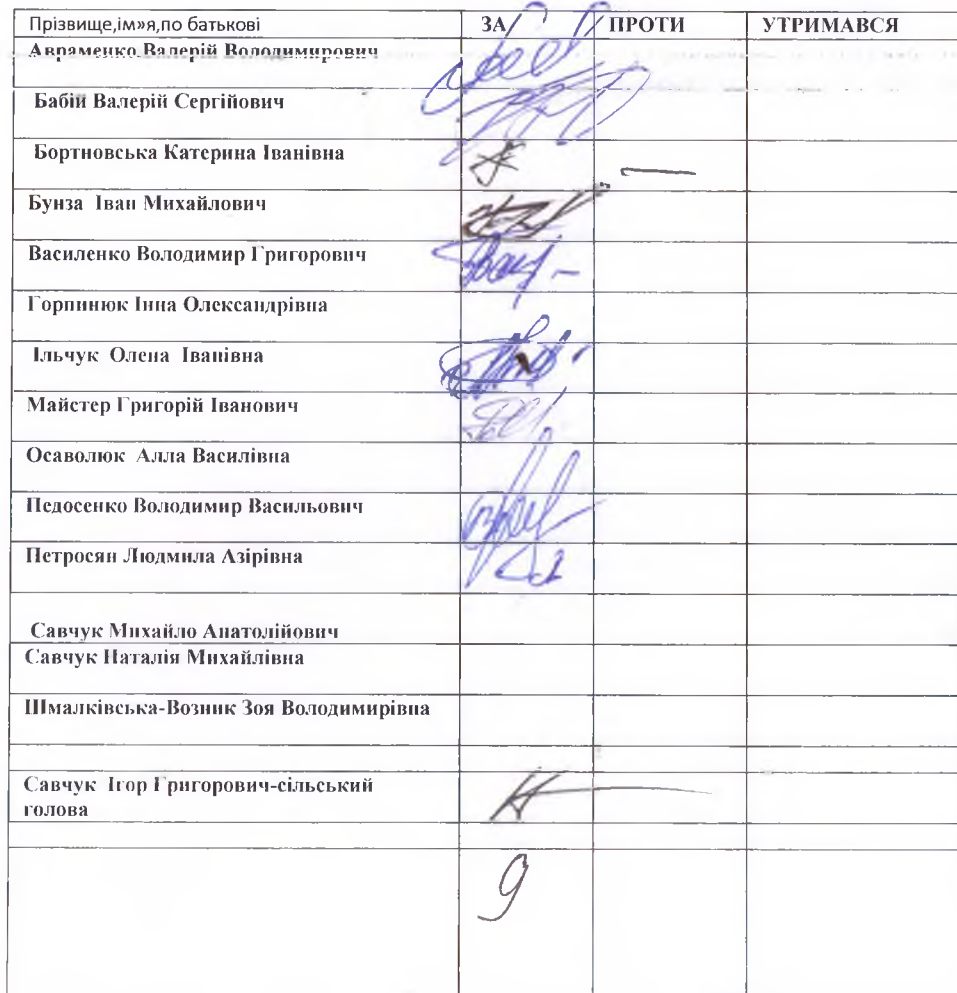 Прізвище,ім»я,по батькові ЗА ПРОТИ УТРИМАВСЯ
Авраменко Валерій Володимирович
Бабій Валерій Сергійович
Бортновська Катерина Іванівна
Бунза Іван Михайлович
Василенко Володимир Григорович
Горпинюк Інна Олександрівна
Ільчук Олена Іванівна
Майстер Григорій Іванович
Осаволюк Алла Василівна
Педосенко Володимир Васильович
Петросян Людмила Азірівна
Савчук Михайло Анатолійович
Савчук Наталія Михайлівна
Шмалківська-Возник Зоя Володимирівна
Савчук Ігор Григорович-сільський
голова
9